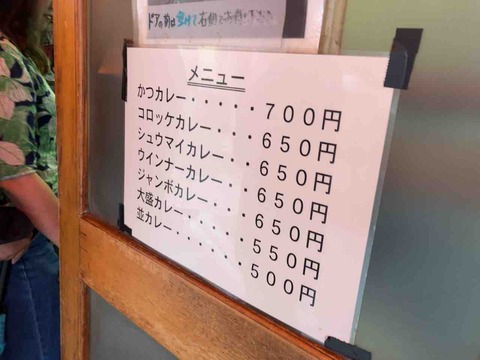 ドアの前は空けて右側でお待ち下さい
メニュー
かつカレー・・・・・700円
コロッケカレー・・・650円
シュウマイカレー・・650円
ウインナーカレー・・650円
ジャンボカレー・・・650円
大盛カレー・・・・・550円
並カレー・・・・・・・500円